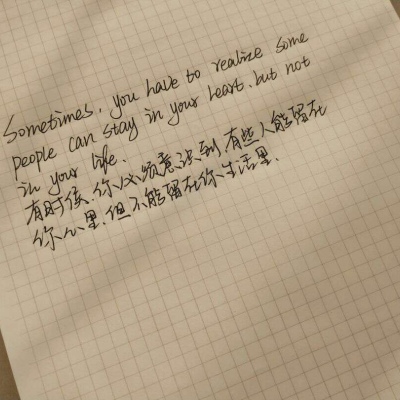 Sometimes, you have to realize some
people can stay in your heart, but not
in your life.
有时候,你必须意识到,有些人能留在
你心里,但不能留在你生活里.